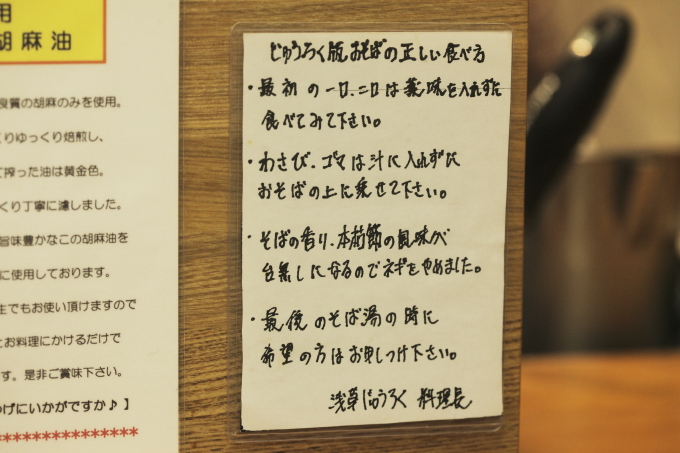 用
胡麻油
良質の胡麻のみを使用。
くりゆっくり焙煎し、
て搾った油は黄金色。
くり丁寧に濾しました。
旨味豊かなこの胡麻油を
に使用しております。
生でもお使い頂けますので
とお料理にかけるだけで
す。是非ご賞味下さい。
つげにいかがですか♪】
******************
じゅうろく版おそばの正しい食べ方
・最初の一口、二口は薬味を入れずに
食べてみて下さい。
・わさび、ゴマは汁に入れずに
おそばの上に乗せて下さい。
・そばの香り、本枯節の風味が
台無しになるのでネギをやめました。
・最後のそば湯の時に
希望の方はお申しつけ下さい。
浅草じゅうろく 料理長